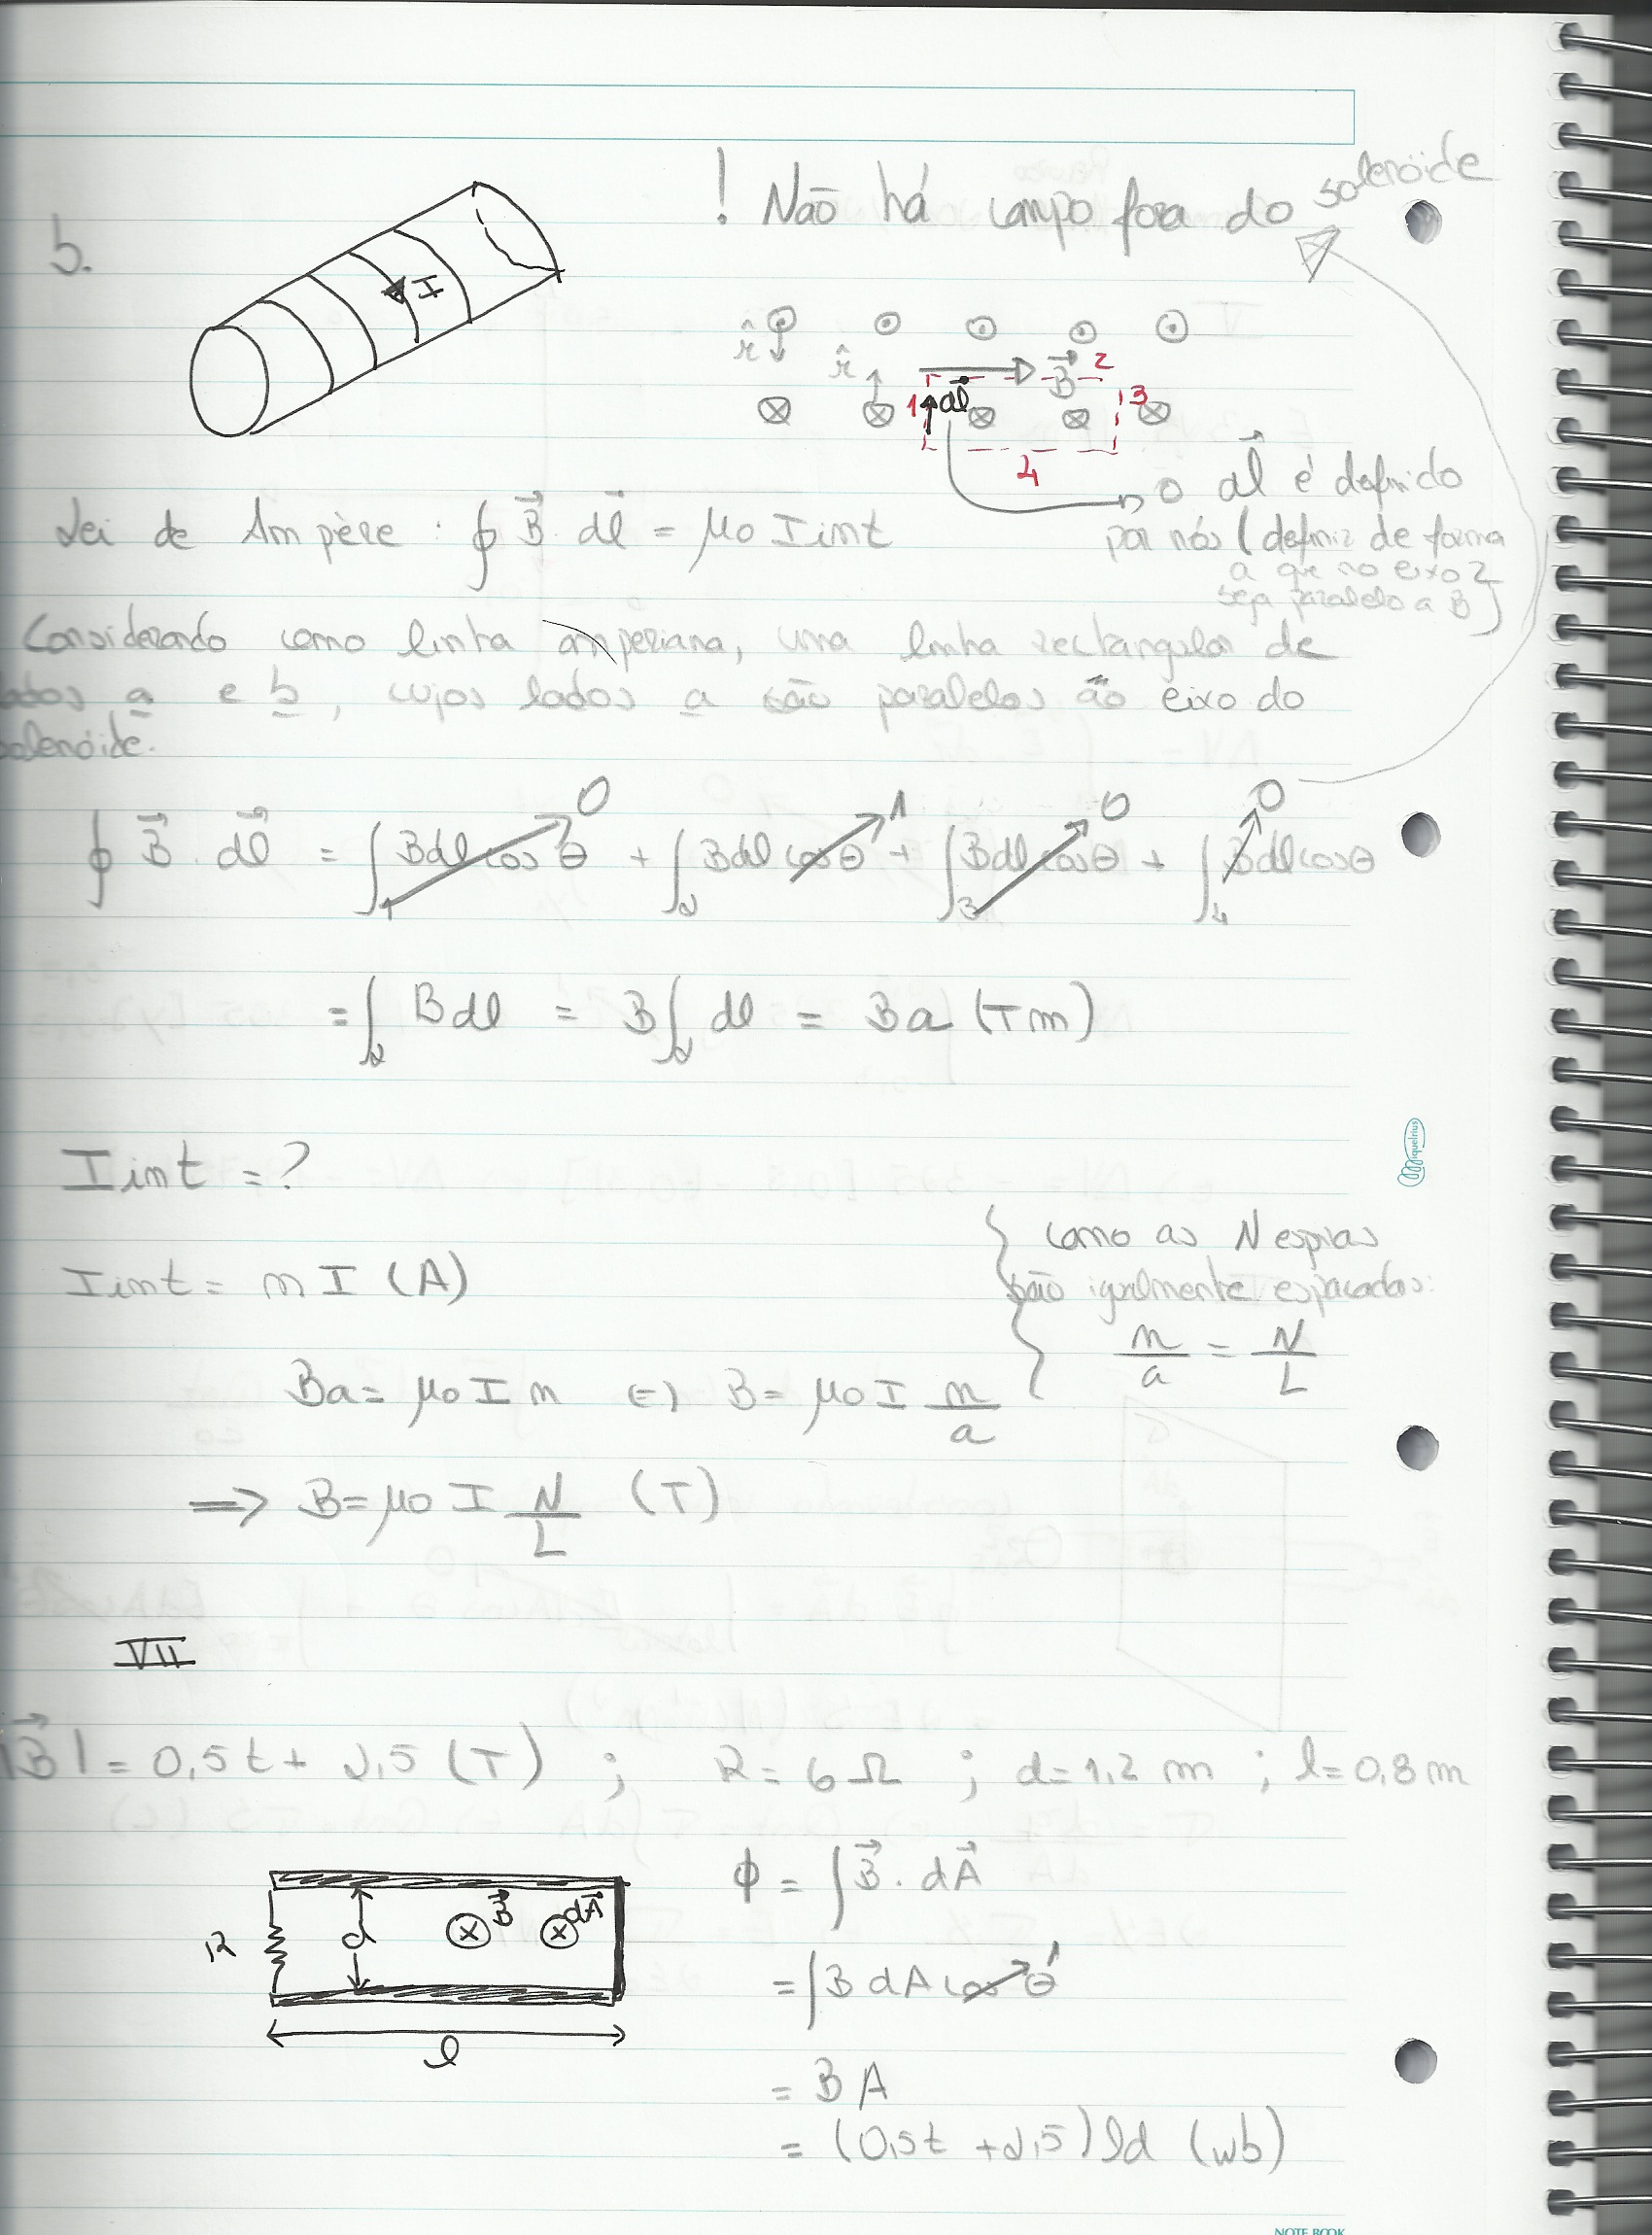 ! Não há campo fora do solenóide
b.
I
r̂
r̂
B⃗ 2
1 dl⃗ 3
4
O dl⃗ é definido
por nós (definir de forma
a que no eixo 2
seja paralelo a B)
Lei de Ampère : ∮ B⃗ . dl⃗ = μ0 I int
Considerando como linha amperiana, uma linha rectangular de
lados a e b, cujos lados a são paralelos ao eixo do
solenóide.
∮ B⃗ . dl⃗ = ∫1 Bdl cos θ → 0 + ∫2 Bdl cos θ → 1 + ∫3 Bdl cos θ → 0 + ∫4 Bdl cos θ → 0
= ∫2 Bdl = B ∫2 dl = Ba (Tm)
I int = ?
I int = n I (A)
{ como as N espiras
são igualmente espaçadas:
n/a = N/L
Ba = μ0 I n ⇔ B = μ0 I n/a
⇒ B = μ0 I N/L (T)
VII
|B⃗| = 0,5t + 2,5 (T) ; R = 6 Ω ; d = 1,2 m ; l = 0,8 m
R d B⃗ dA⃗
l
ϕ = ∫ B⃗ . dA⃗
= ∫ B dA cos θ → 1
= B A
= (0,5t + 2,5) ld (wb)
Miquelrius
NOTE BOOK